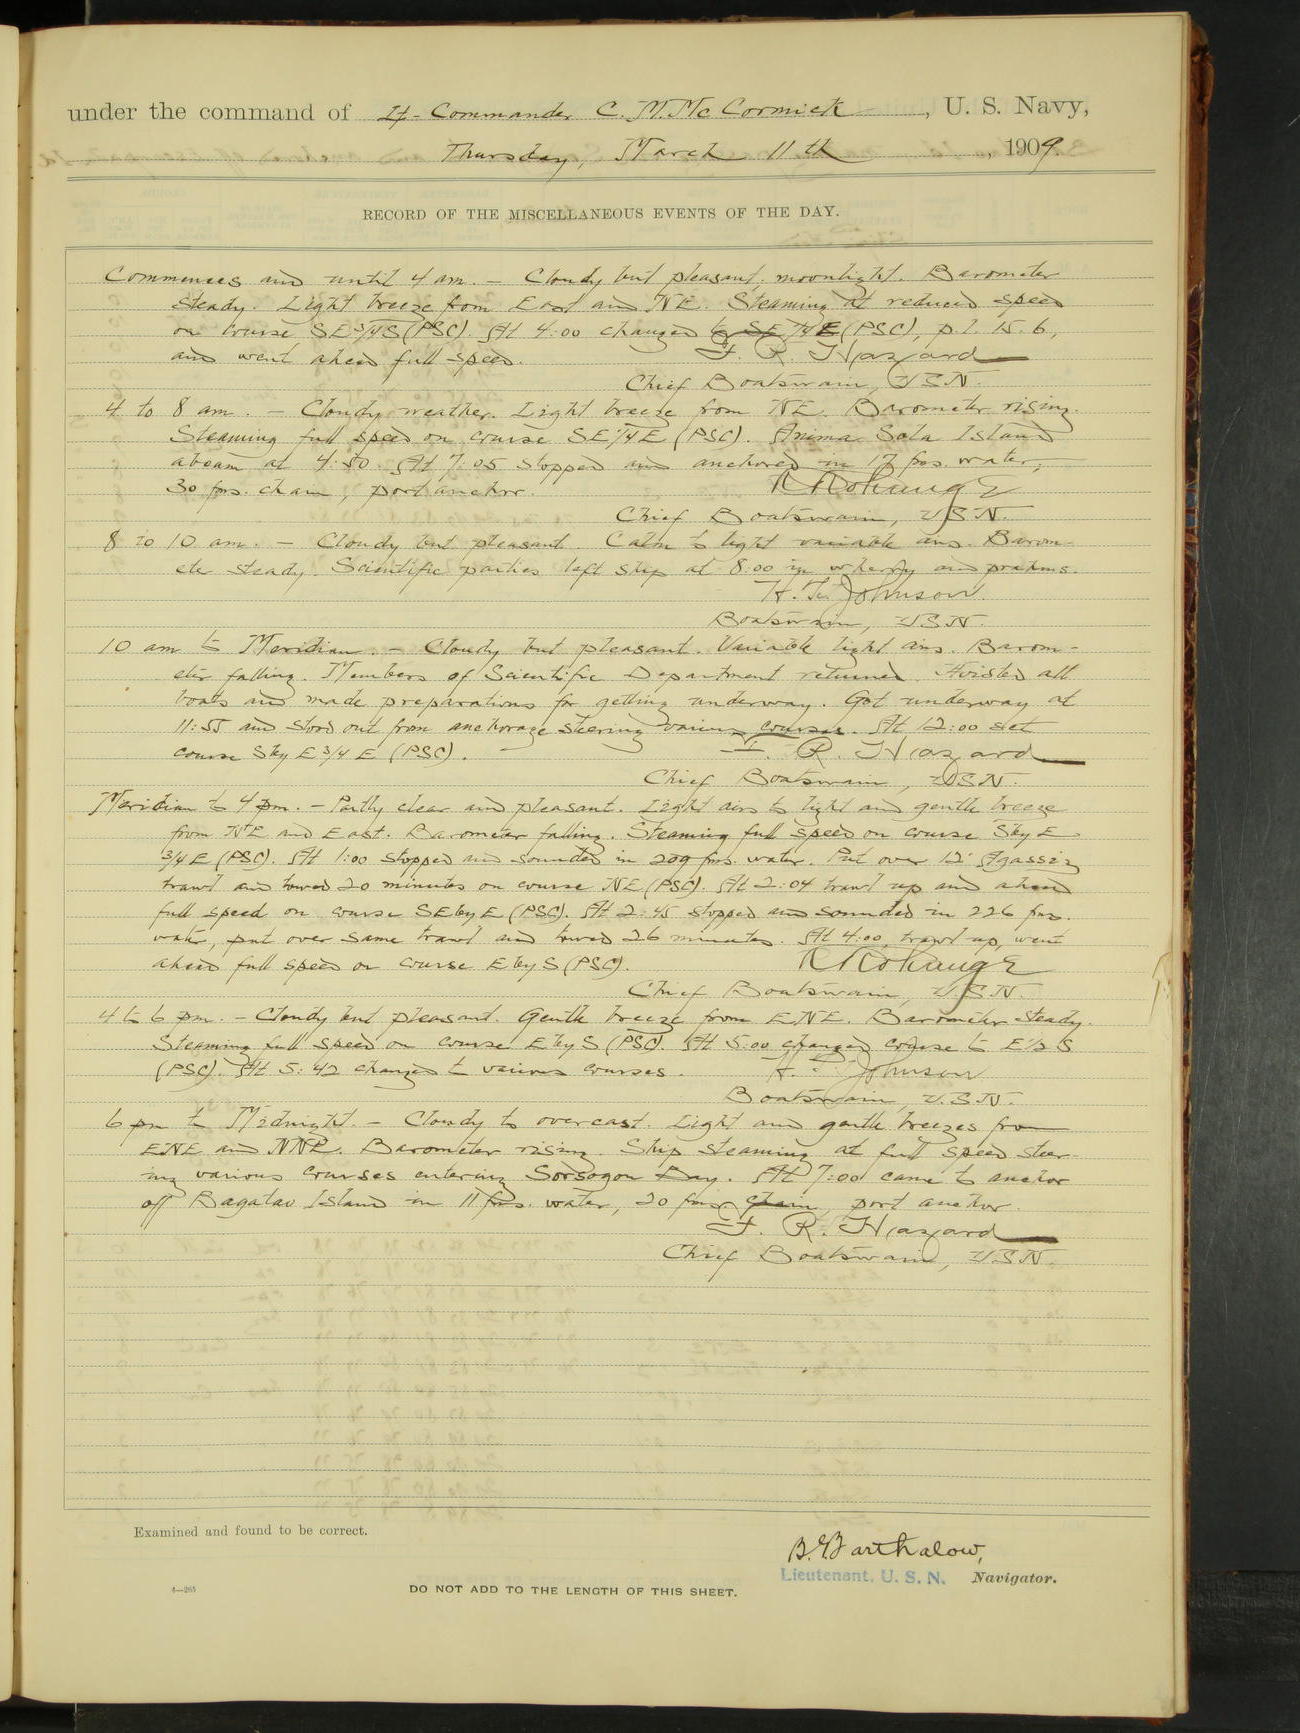 under the command of Lt-Commander C. M. McCormick, U. S. Navy,
Thursday, March 11th, 1909.
RECORD OF THE MISCELLANEOUS EVENTS OF THE DAY.
Commences and until 4 am. - Cloudy but pleasant, moonlight. Barometer
steady. Light breeze from East and NE. Steaming at reduced speed
on course SE 3/4 S (PSC). At 4:00 changed to SE 1/4 E (PSC), p.l. 15.6,
and went ahead full speed. F. R. Hazard
Chief Boatswain, USN.
4 to 8 am. - Cloudy weather. Light breeze from NE. Barometer rising.
Steaming full speed on course SE 1/4 E (PSC). Anima Sola Island
abeam at 4:50. At 7:05 stopped and anchored in 17 fms. water,
30 fms. chain, port anchor.
Chief Boatswain, USN.
8 to 10 am. - Cloudy but pleasant. Calm to light variable airs. Barom-
eter steady. Scientific parties left ship at 8:00 in wherry and prahms.
Johnson
Boatswain, USN.
10 am to Meridian. - Cloudy but pleasant. Variable light airs. Barom-
eter falling. Members of Scientific Department returned. Hoisted all
boats and made preparations for getting underway. Got underway at
11:55 and stood out from anchorage steering various courses. At 12:00 set
course S by E 3/4 E (PSC). F. R. Hazard
Chief Boatswain, USN.
Meridian to 4 pm. - Partly clear and pleasant. Light airs to light and gentle breeze
from NE and East. Barometer falling. Steaming full speed on course S by E
3/4 E (PSC). At 1:00 stopped and sounded in 209 fms. water. Put over 12' Agassiz
trawl and towed 20 minutes on course NE (PSC). At 2:04 trawl up and ahead
full speed on course SE by E (PSC). At 2:45 stopped and sounded in 226 fms.
water, put over same trawl and towed 26 minutes. At 4:00, trawl up, went
ahead full speed on course E by S (PSC).
Chief Boatswain, U.S.N.
4 to 6 pm. - Cloudy but pleasant. Gentle breeze from ENE. Barometer steady.
Steaming full speed on course E by S (PSC). At 5:00 changed course to E 1/2 S
(PSC). At 5:42 changed to various courses. Johnson
Boatswain, U.S.N.
6 pm to Midnight. - Cloudy to overcast. Light and gentle breezes from
ENE and NNE. Barometer rising. Ship steaming at full speed steer-
ing various courses entering Sorsogon Bay. At 7:00 came to anchor
off Bagatao Island in 11 fms. water, 20 fms chain, port anchor.
F. R. Hazard
Chief Boatswain, USN.
Examined and found to be correct.
Barthalow,
Lieutenant, U. S. N. Navigator.
4—265
DO NOT ADD TO THE LENGTH OF THIS SHEET.